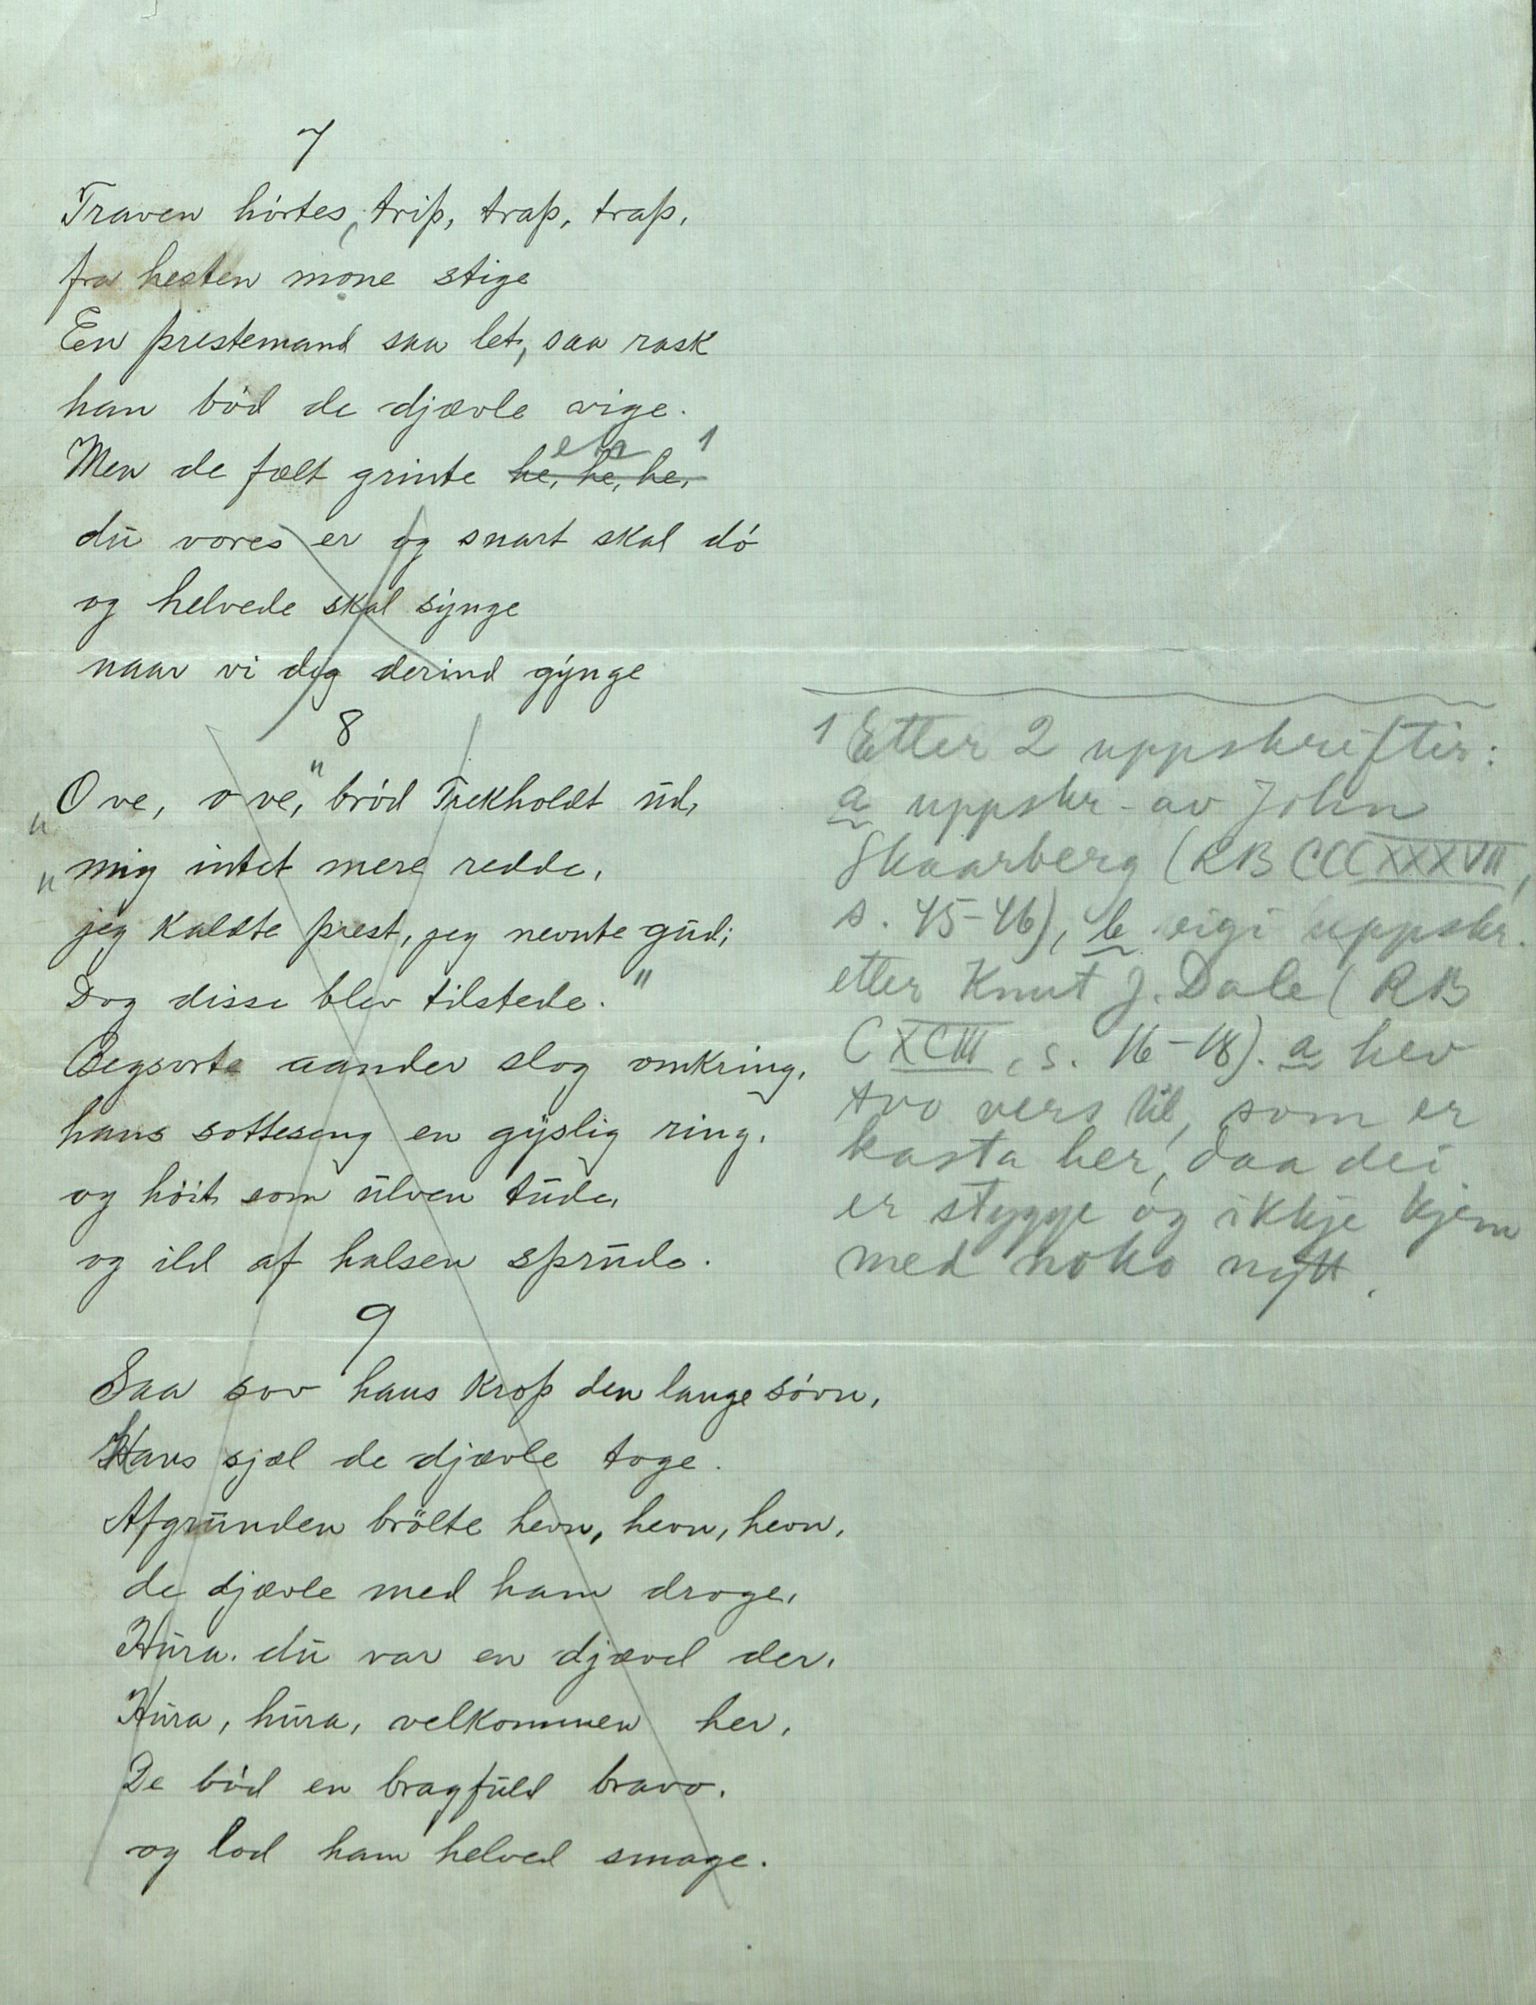 7
Traven hórtes, trip, trap, trap,
fra hesten mone stige
En prestemand saa let, saa rask
han bód de djævle vige.
en 1
Men de fælt grinte he, he, he,
du vores er og snart skal dó
og helvede skal synge
naar vi dig derind gynge
8
"O ve, o ve," bród Trekholdt ud,
"mig intet mere redde,
jeg kaldte prest, jeg nevnte gud;
Dog disse blev tilstede."
Begsorte aander slog omkring,
hans sotteseng en gyslig ring,
og höit som ulven tude,
og ild af halsen sprude.
9
Saa sov hans krop den lange sóvn,
Hans sjæl de djævle toge.
Afgrunden brölte hevn, hevn, hevn,
de djævle med ham droge,
Hura. du var en djævel der,
Hura, hura, velkommen her,
De bód en bragfuld bravo.
og lod ham helved smage.
1 Etter 2 uppskrifter:
a uppskr. av John
Skaarberg (RB CCCXXXVII,
s. 45-46), b eigi uppskr.
etter Knut J. Dale (RB
CXCIII, s. 16-18). a hev
tvo vers til, som er
kasta her, daa dei
er stygge og ikkje kjem
med noko nytt.